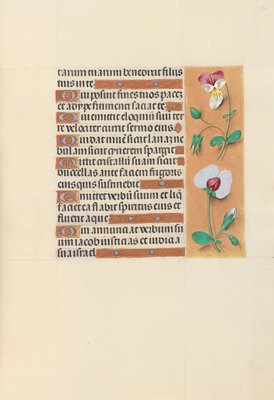 tarum tuarum benedixit filiis
tuis in te
Qui posuit fines tuos pacez
et adype frumenti saciat te
Qui emittit eloquiu suu ter
re velociter currit sermo eius
Qui dat nive sicut lanaz ne
bulam sicut cinerem spargit
Mittit cristallu suam sicut
buccellas ante faciem frigoris
eius quis sustinebit
Emittet verbu suum et liq
faciet ea flabit spiritus eius et
fluent aque
Qui annunciat verbum su
um iacob iusticias et iudicia
sua israel